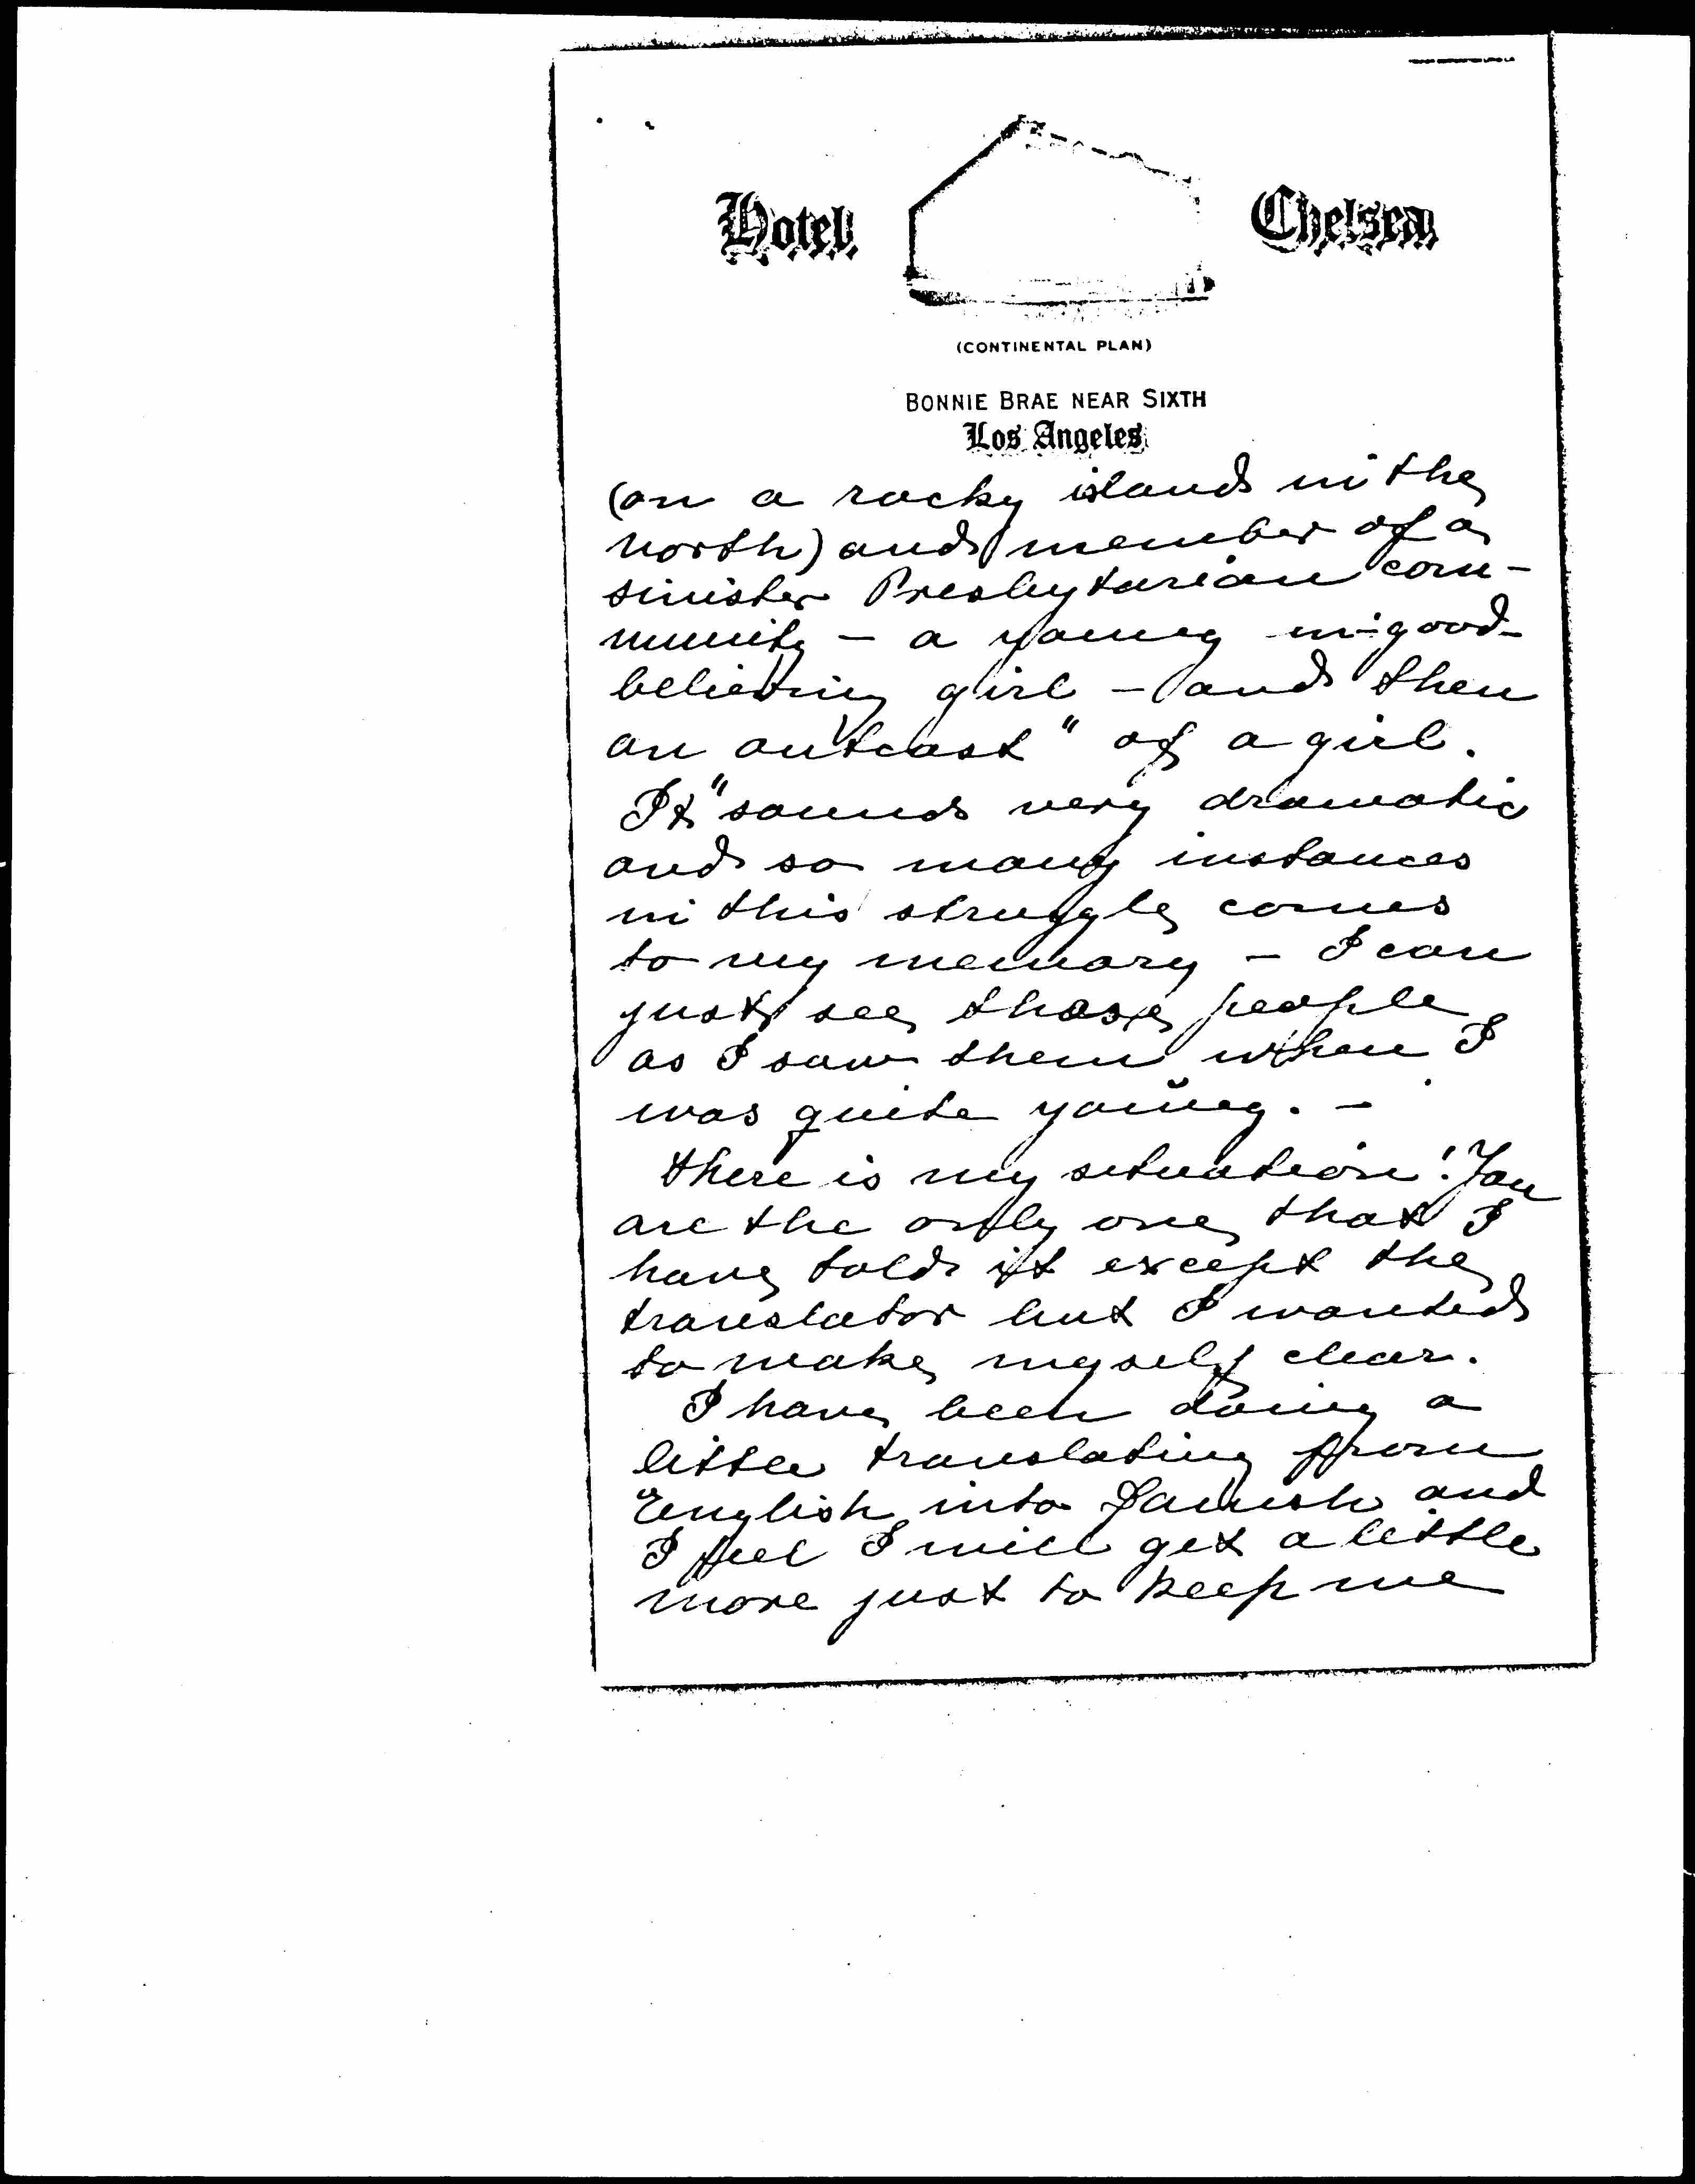 Hotel Chelsea
(CONTINENTAL PLAN)
BONNIE BRAE NEAR SIXTH
Los Angeles
(on a rocky island in the
north) and member of a
sinister Presbytarian com-
munity – a young in-good-
believing girl – and then
an "outcast" of a girl.
It sounds very dramatic
and so many instances
in this struggle comes
to my memory – I can
just see those people
as I saw them when I
was quite young. –
there is my situation! You
are the only one that I
have told it except the
translator but I wanted
to make myself clear.
I have been doing a
little translating from
English into Danish and
I feel I will get a little
more just to keep me